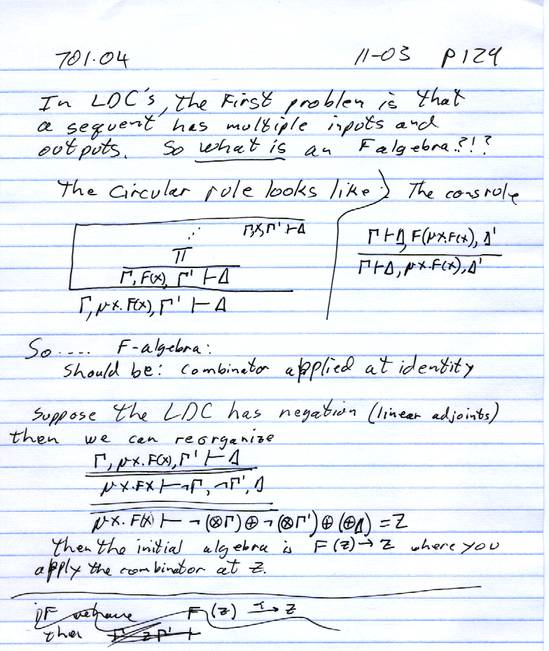 701.04 11-03 P124
In LDC's, the First problem is that
a sequent has multiple inputs and
outputs. So what is an Falgebra?!?
The circular rule looks like: The consrule
Γ,X,Γ' ⊢ Δ
⋰
π
Γ, F(X), Γ' ⊢ Δ
Γ, μX.F(X), Γ' ⊢ Δ
Γ ⊢ Δ, F(μX.F(X)), Δ'
Γ ⊢ Δ, μX.F(X), Δ'
So.... F-algebra:
Should be: combinator applied at identity
Suppose the LDC has negation (linear adjoints)
then we can reorganize
Γ, μX.F(X), Γ' ⊢ Δ
μX.FX ⊢ ¬Γ, ¬Γ', Δ
μX.F(X) ⊢ ¬(⊗Γ) ⊕ ¬(⊗Γ') ⊕ (⊕Δ) = Z
then the initial algebra is F(Z) → Z where you
apply the combinator at Z.
if we have F(Z) → Z
then